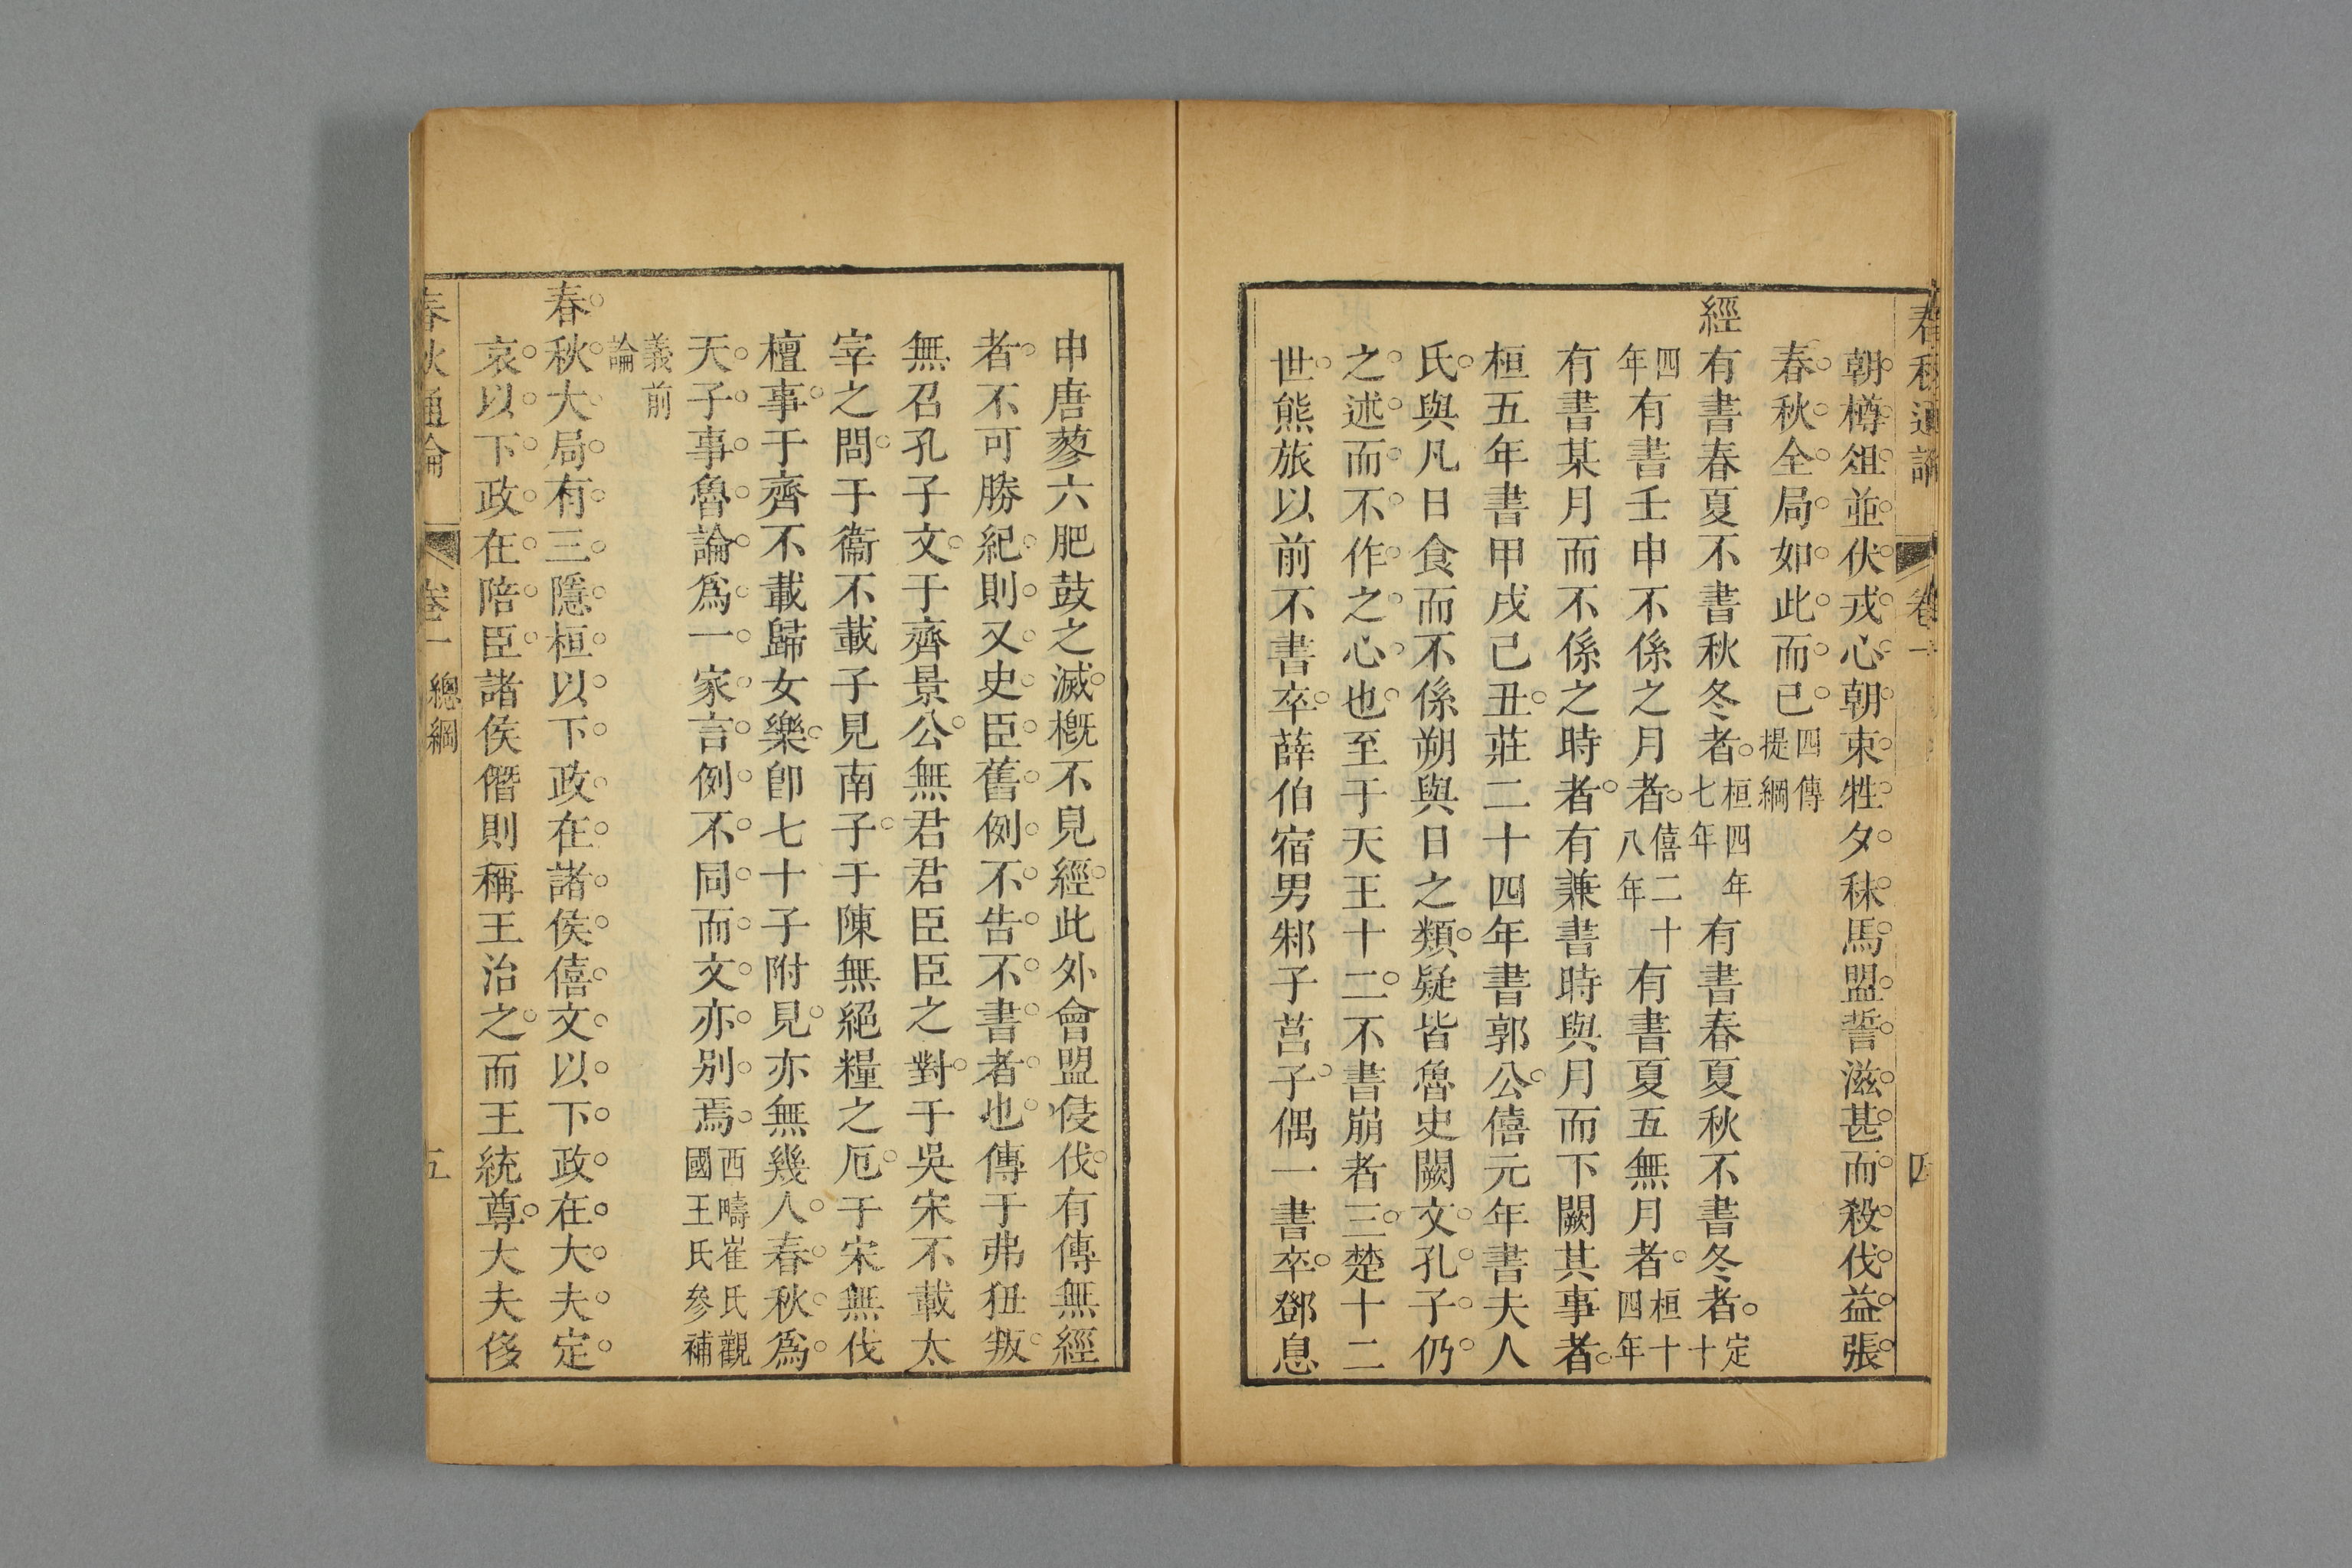 春秋通論 卷一 四
朝樽俎並伏戎心朝束牲夕秣馬盟誓滋甚而殺伐益張
春秋全局如此而已四傳提綱
經有書春夏不書秋冬者桓四年七年有書春夏秋不書冬者定十
四年有書壬申不係之月者僖二十八年有書夏五無月者桓十四年
有書某月而不係之時者有兼書時與月而下闕其事者
桓五年書甲戌己丑莊二十四年書郭公僖元年書夫人
氏與凡日食而不係朔與日之類疑皆魯史闕文孔子仍
之述而不作之心也至于天王十二不書崩者三楚十二
世熊旅以前不書卒薛伯宿男邾子莒子偶一書卒鄧息
申唐蓼六肥鼓之滅槪不見經此外會盟侵伐有傳無經
者不可勝紀則又史臣舊例不告不書者也傳于弗狃叛
無召孔子文于齊景公無君君臣臣之對于吳宋不載太
宰之問于衞不載子見南子于陳無絕糧之厄于宋無伐
檀事于齊不載歸女樂卽七十子附見亦無幾人春秋爲
天子事魯論爲一家言例不同而文亦別焉西疇崔氏觀國王氏參補
義前論
春秋大局有三隱桓以下政在諸侯僖文以下政在大夫定
哀以下政在陪臣諸侯僭則稱王治之而王統尊大夫侈
春秋通論 卷一 總綱 五